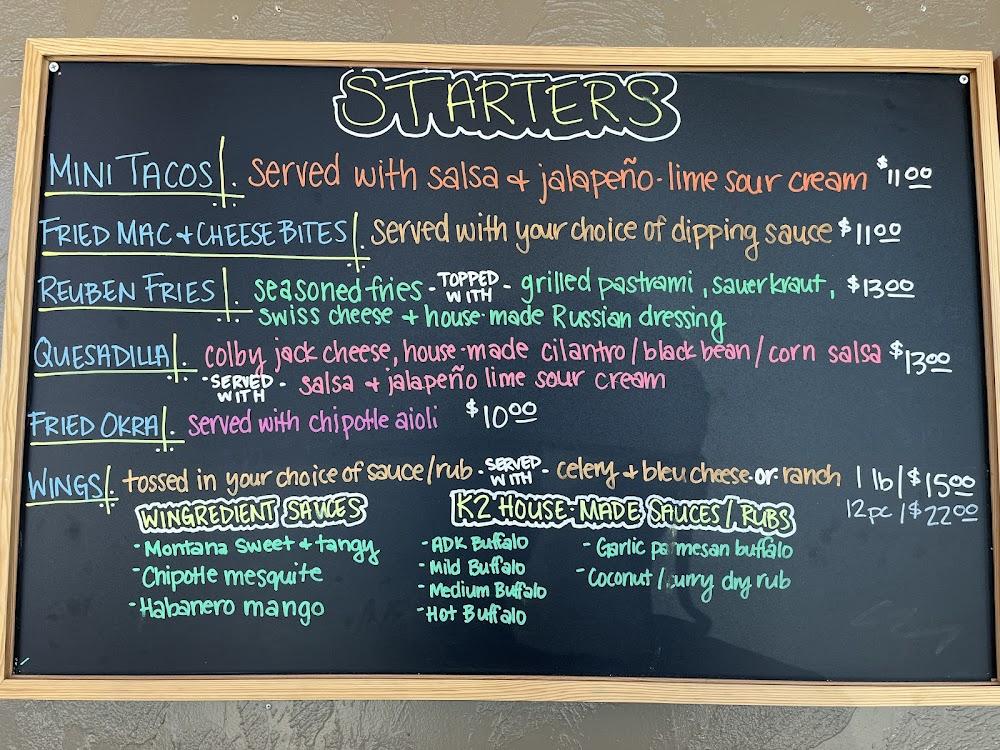 STARTERS
MINI TACOS served with salsa + jalapeño-lime sour cream $11.00
FRIED MAC + CHEESE BITES served with your choice of dipping sauce $11.00
REUBEN FRIES seasoned fries - TOPPED WITH - grilled pastrami, sauerkraut, $13.00
swiss cheese + house-made Russian dressing
QUESADILLA colby jack cheese, house-made cilantro/black bean/corn salsa $13.00
-SERVED WITH- salsa + jalapeño lime sour cream
FRIED OKRA served with chipotle aioli $10.00
WINGS tossed in your choice of sauce/rub -SERVED WITH- celery + bleu cheese -or- ranch 1 lb/$15.00
12 pc/$22.00
WINGREDIENT SAUCES
- Montana Sweet + tangy
- Chipotle mesquite
- Habanero mango
K2 HOUSE-MADE SAUCES/RUBS
- ADK Buffalo
- Mild Buffalo
- Medium Buffalo
- Hot Buffalo
- Garlic parmesan buffalo
- Coconut/curry dry rub